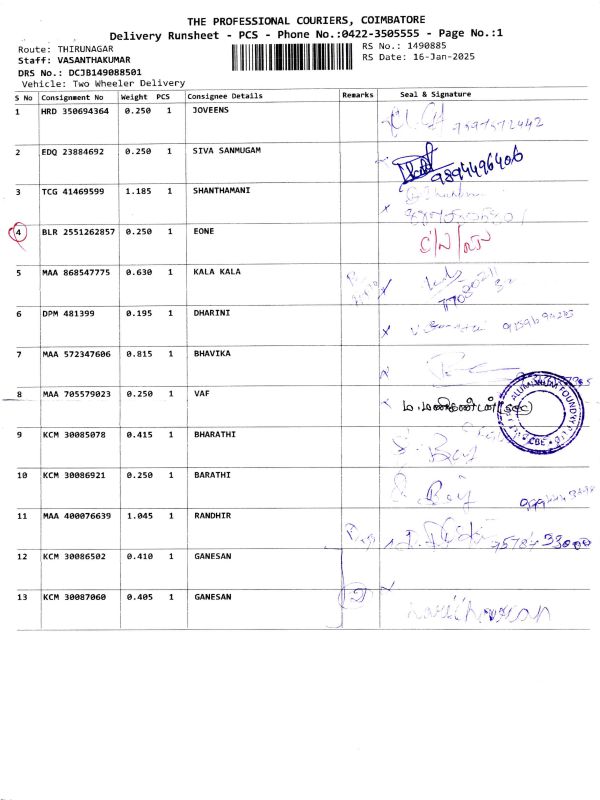 THE PROFESSIONAL COURIERS, COIMBATORE
Delivery Runsheet - PCS - Phone No.:0422-3505555 - Page No.:1
Route: THIRUNAGAR
RS No.: 1490885
Staff: VASANTHAKUMAR
RS Date: 16-Jan-2025
DRS No.: DCJB149088501
Vehicle: Two Wheeler Delivery
S No Consignment No Weight PCS Consignee Details Remarks Seal & Signature
1 HRD 350694364 0.250 1 JOVEENS
2 EDQ 23884692 0.250 1 SIVA SANMUGAM 9894496406
3 TCG 41469599 1.185 1 SHANTHAMANI
4 BLR 2551262857 0.250 1 EONE
5 MAA 868547775 0.630 1 KALA KALA
6 DPM 481399 0.195 1 DHARINI
7 MAA 572347606 0.815 1 BHAVIKA
8 MAA 705579023 0.250 1 VAF ம. மணிகண்டன்
ALUMINIUM FOUNDRY CBE
9 KCM 30085078 0.415 1 BHARATHI
10 KCM 30086921 0.250 1 BARATHI
11 MAA 400076639 1.045 1 RANDHIR
12 KCM 30086502 0.410 1 GANESAN
13 KCM 30087060 0.405 1 GANESAN 2